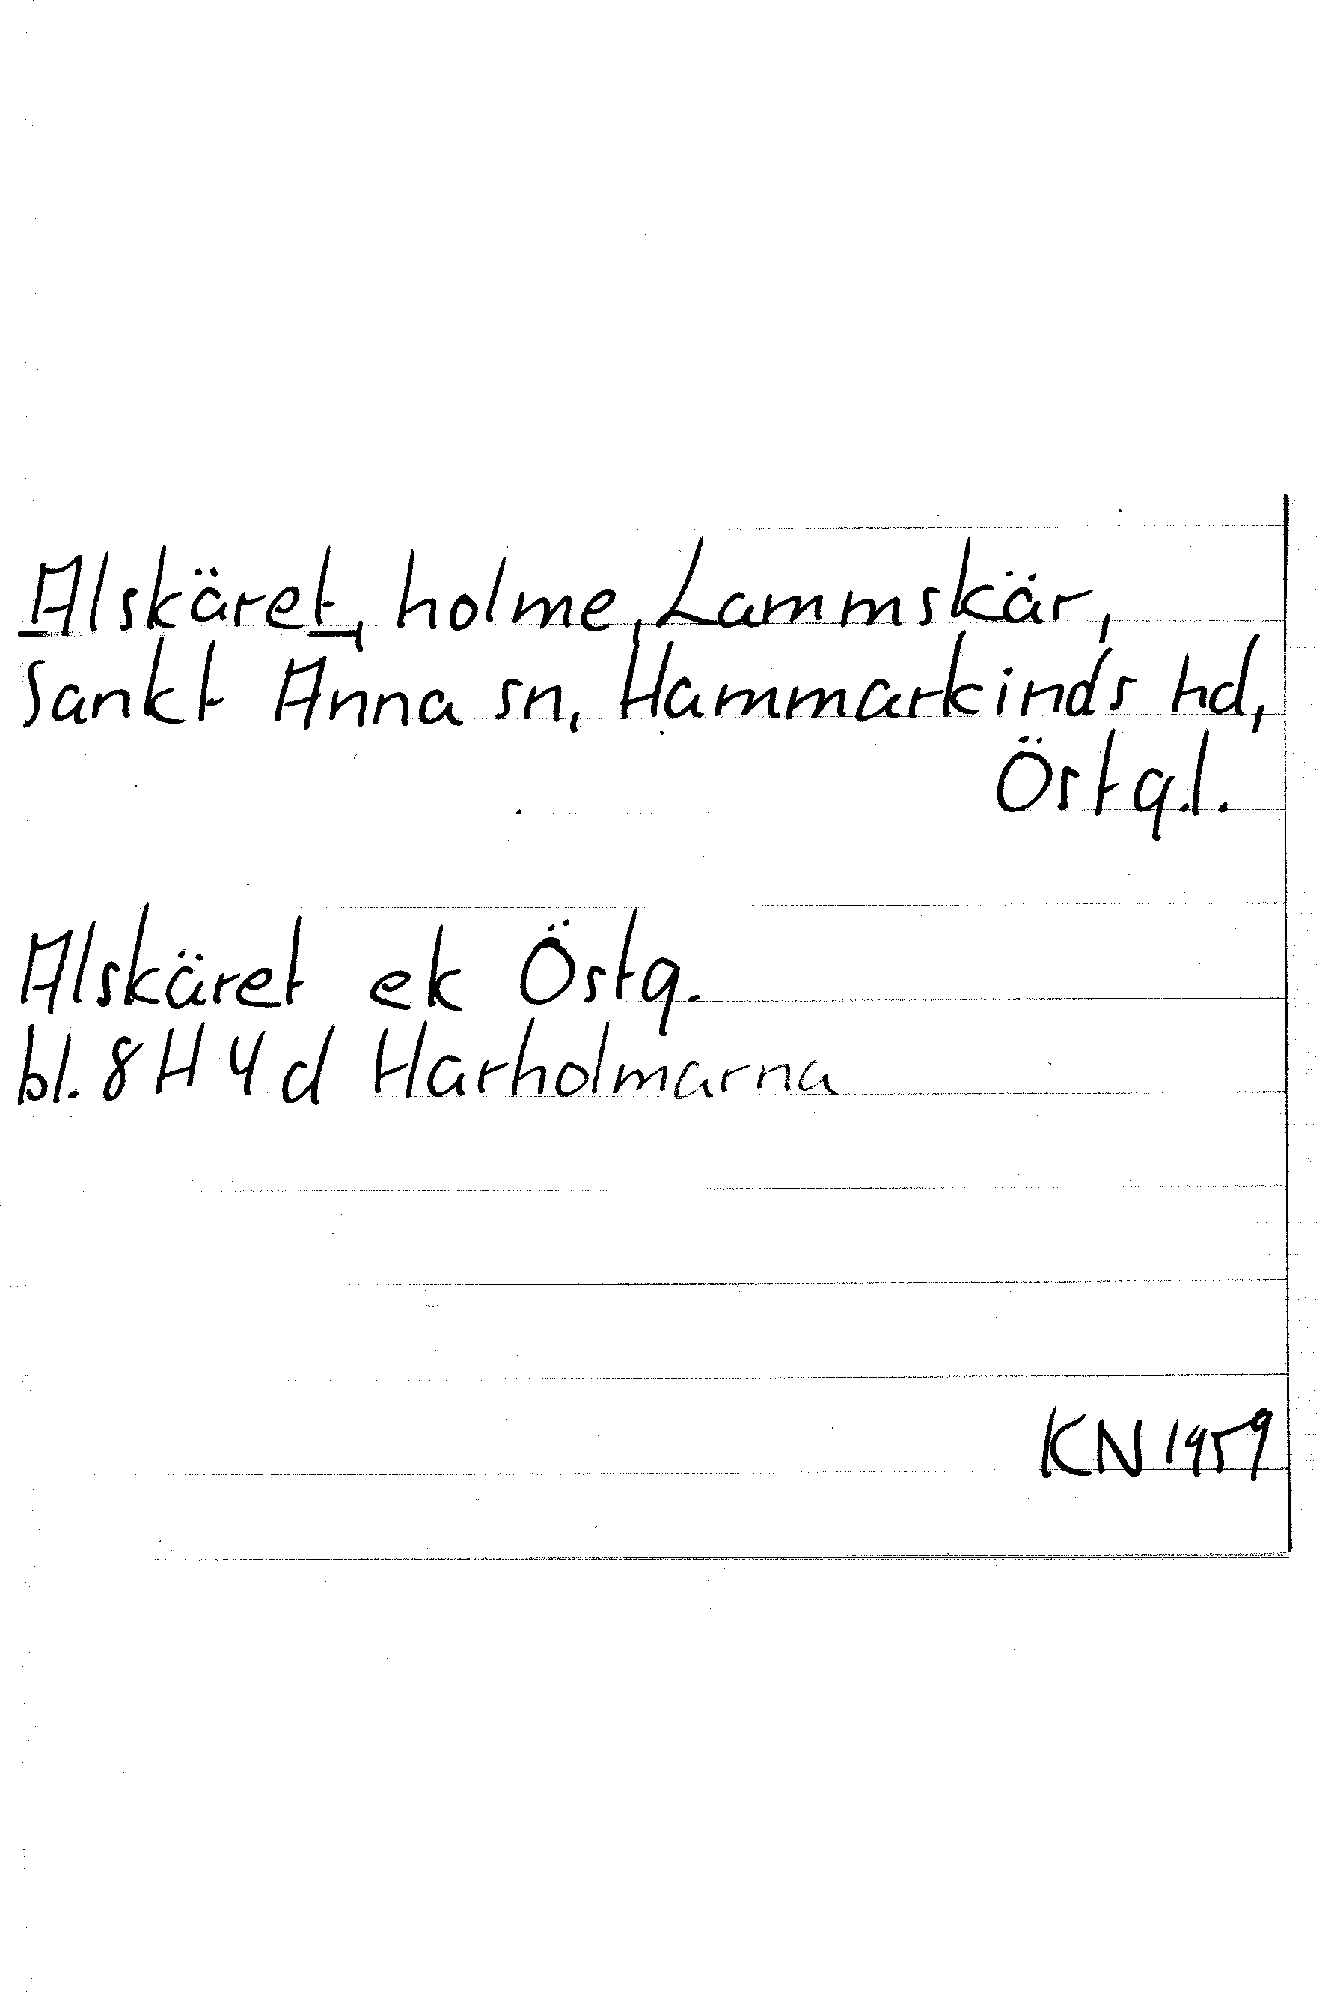 Alskäret, holme, Lammskär,
Sankt Anna sn, Hammarkinds hd,
Östg.l.
Alskäret ek Östg.
bl. 8H4d Harholmarna
KN 1959